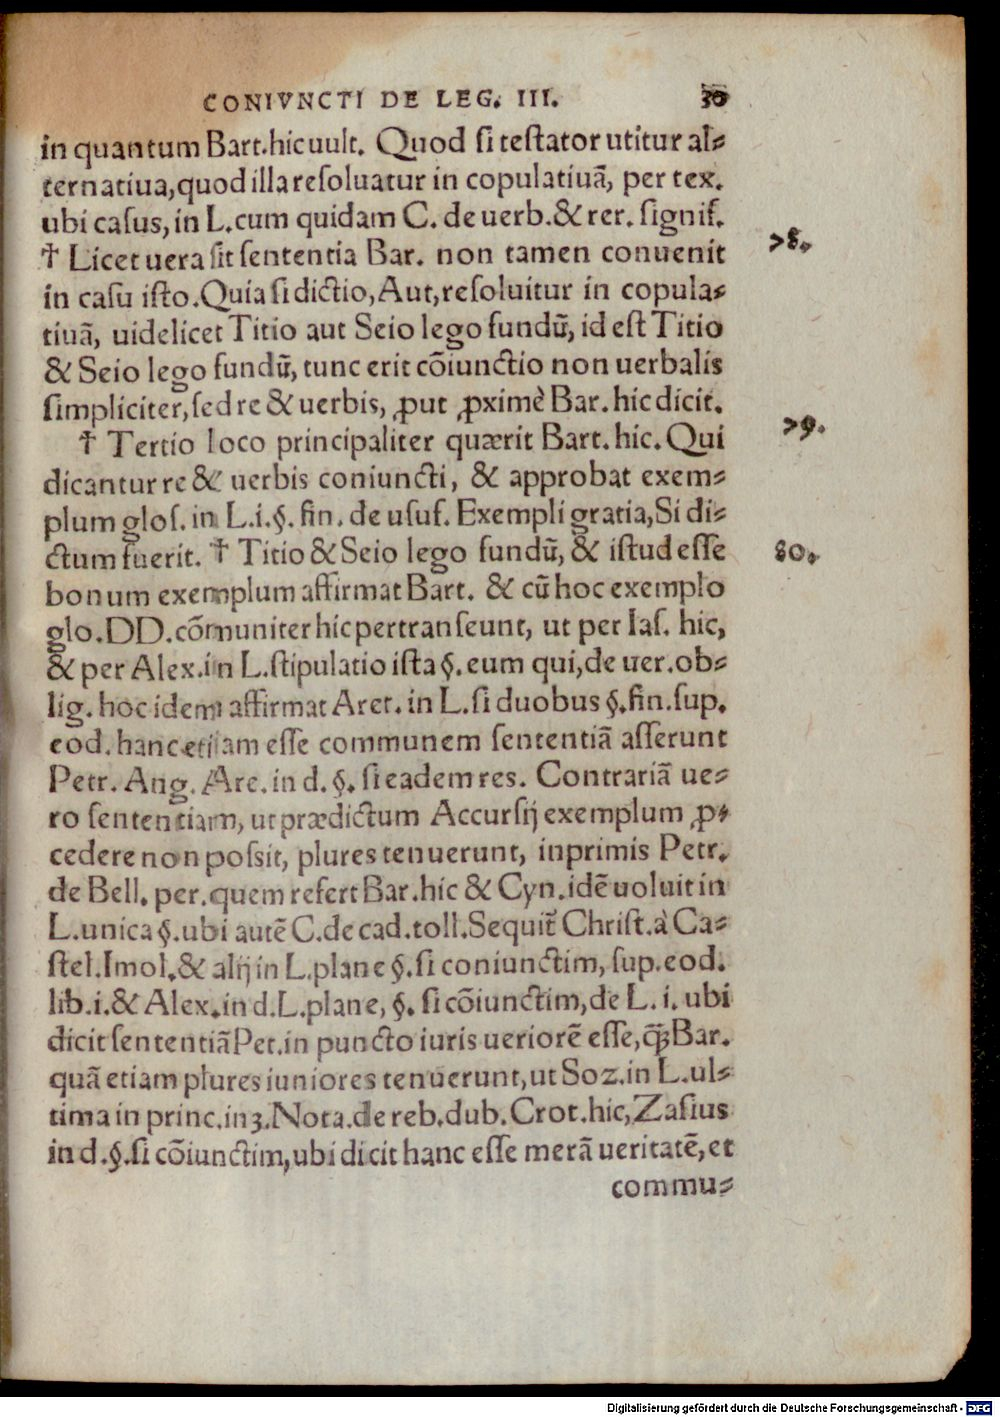 CONIVNCTI DE LEG. III. 30
in quantum Bart. hic uult. Quod si testator utitur al⸗
ternatiua, quod illa resoluatur in copulatiuã, per tex.
ubi casus, in L. cum quidam C. de uerb. & rer. signif.
† Licet uera sit sententia Bar. non tamen conuenit
78.
in casu isto. Quia si dictio, Aut, resoluitur in copula⸗
tiuã, uidelicet Titio aut Seio lego fundũ, id est Titio
& Seio lego fundũ, tunc erit cõiunctio non uerbalis
simpliciter, sed re & uerbis, ꝓut ꝓximè Bar. hic dicit.
† Tertio loco principaliter quærit Bart. hic. Qui
79.
dicantur re & uerbis coniuncti, & approbat exem⸗
plum glos. in L. i. §. fin. de usuf. Exempli gratia, Si di⸗
ctum fuerit. † Titio & Seio lego fundũ, & istud esse
80.
bonum exemplum affirmat Bart. & cũ hoc exemplo
glo. DD. cõmuniter hic pertranseunt, ut per Ias. hic,
& per Alex. in L. stipulatio ista §. eum qui, de uer. ob⸗
lig. hoc idem affirmat Aret. in L. si duobus §. fin. sup.
eod. hanc etiam esse communem sententiã asserunt
Petr. Ang. Are. in d. §. si eadem res. Contrariã ue⸗
ro sententiam, ut prædictum Accursij exemplum ꝓ⸗
cedere non possit, plures tenuerunt, inprimis Petr.
de Bell. per. quem refert Bar. hic & Cyn. idẽ uoluit in
L. unica §. ubi autẽ C. de cad. toll. Sequit᷑ Christ. à Ca⸗
stel. Imol. & alij in L. plane §. si coniunctim, sup. eod.
lib. i. & Alex. in d. L. plane, §. si cõiunctim, de L. i. ubi
dicit sententiã Pet. in puncto iuris ueriorẽ esse, q̃ʒ Bar.
quã etiam plures iuniores tenuerunt, ut Soz. in L. ul⸗
tima in princ. in 3. Nota. de reb. dub. Crot. hic, Zasius
in d. §. si cõiunctim, ubi dicit hanc esse merã ueritatẽ, et
commu⸗
Digitalisierung gefördert durch die Deutsche Forschungsgemeinschaft - DFG